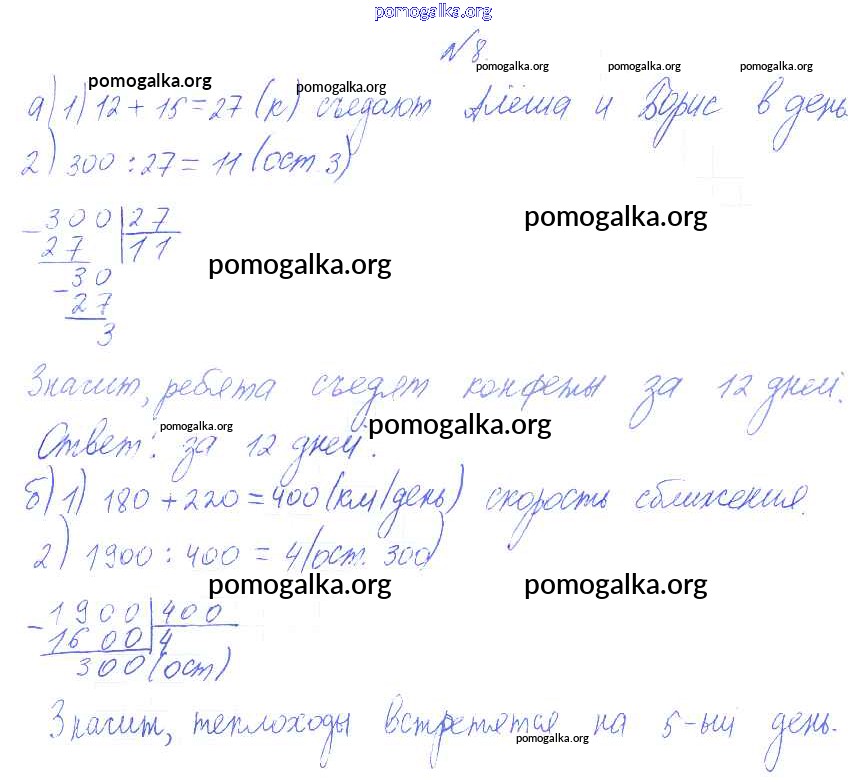 pomogalka.org
№8.
pomogalka.org pomogalka.org pomogalka.org
pomogalka.org pomogalka.org
а) 1) 12 + 15 = 27 (к) съедают Алёша и Борис в день
2) 300 : 27 = 11 (ост. 3)
pomogalka.org
- 300 | 27
27 | 11
pomogalka.org
- 30
27
3
Значит, ребята съедят конфеты за 12 дней.
pomogalka.org pomogalka.org
Ответ: за 12 дней.
б) 1) 180 + 220 = 400 (км/день) скорость сближения.
2) 1900 : 400 = 4 (ост. 300)
pomogalka.org pomogalka.org
- 1900 | 400
1600 | 4
300 (ост)
Значит, теплоходы встретятся на 5-ый день.
pomogalka.org